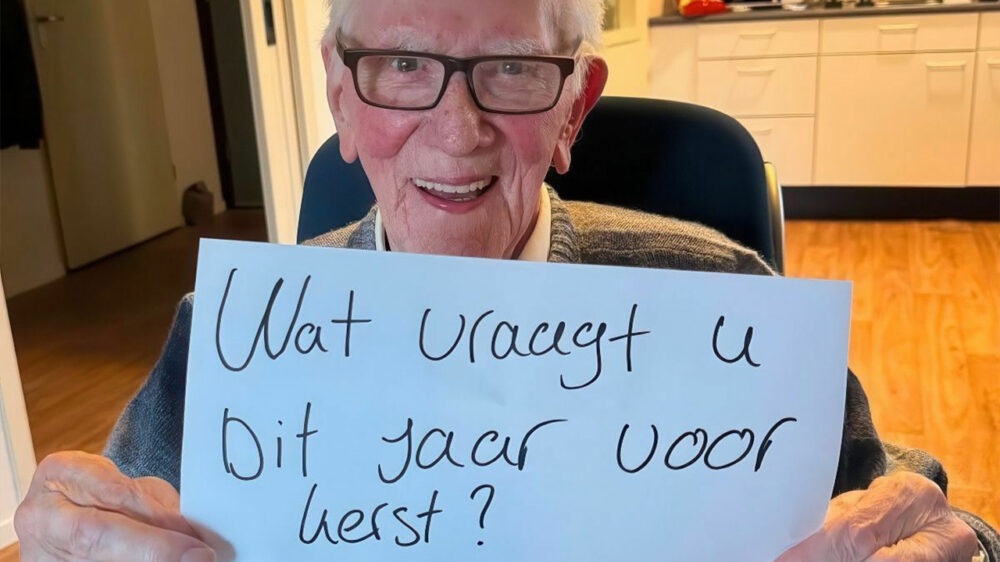 Wat vraagt u
Dit jaar voor
kerst?